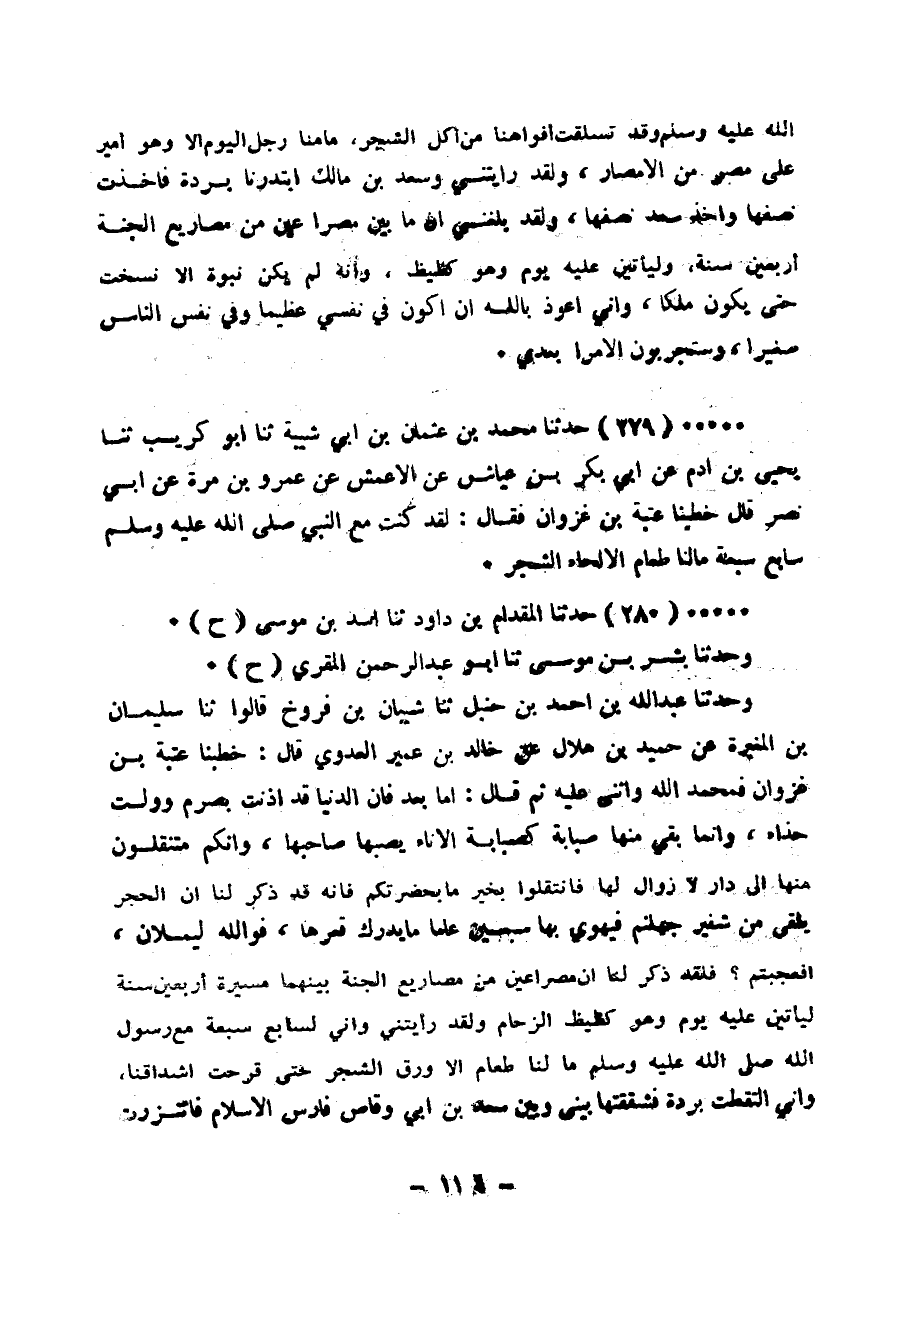 الله عليه وسلم وقد تسلقت أفواهنا من أكل الشجر، مامنا رجل اليوم الا وهو أمير
على مصر من الامصار ، ولقد رايتني وسعد بن مالك ابتدرنا بردة فاخذت
نصفها واخذ سعد نصفها ، ولقد بلغني ان ما بين مصراعين من مصاريع الجنة
أربعين سنة، وليأتين عليه يوم وهو كظيظ ، وأنه لم يكن نبوة الا نسخت
حتى يكون ملكا ، واني اعوذ بالله ان اكون في نفسي عظيما وفي نفس الناس
صغيرا ، وستجربون الامرا بعدي •
••••• ( ٢٧٩ ) حدثنا محمد بن عثمان بن ابي شيبة ثنا ابو كريب ثنا
يحيى بن ادم عن ابي بكر بن عياش عن الاعمش عن عمرو بن مرة عن ابي
نصر قال خطبنا عتبة بن غزوان فقال : لقد كنت مع النبي صلى الله عليه وسلم
سابع سبعة مالنا طعام الالحاء الشجر •
••••• ( ٢٨٠ ) حدثنا المقدام بن داود ثنا اسد بن موسى ( ح ) •
وحدثنا بشر بن موسى ثنا ابو عبدالرحمن المقري ( ح ) •
وحدثنا عبدالله بن احمد بن حنبل ثنا شيبان بن فروخ قالوا ثنا سليمان
بن المغيرة عن حميد بن هلال عن خالد بن عمير العدوي قال : خطبنا عتبة بن
غزوان فمحمد الله واثنى عليه ثم قال : اما بعد فان الدنيا قد اذنت بصرم وولت
حذاء ، وانما بقي منها صبابة كصبابة الاناء يصبها صاحبها ، وانكم متنقلون
منها الى دار لا زوال لها فانتقلوا بخير مابحضرتكم فانه قد ذكر لنا ان الحجر
يلقى من شفير جهنم فيهوي بها سبعين عاما مايدرك قعرها ، فوالله ليملان ،
افعجبتم ؟ فلقد ذكر لنا ان مصراعين من مصاريع الجنة بينهما مسيرة أربعين سنة
ليأتين عليه يوم وهو كظيظ الزحام ولقد رأيتني واني لسابع سبعة مع رسول
الله صلى الله عليه وسلم ما لنا طعام الا ورق الشجر حتى قرحت اشداقنا،
واني التقطت بردة فشققتها بيني وبين سعد بن ابي وقاص فارس الاسلام فاتزرت
- ١١٤ -